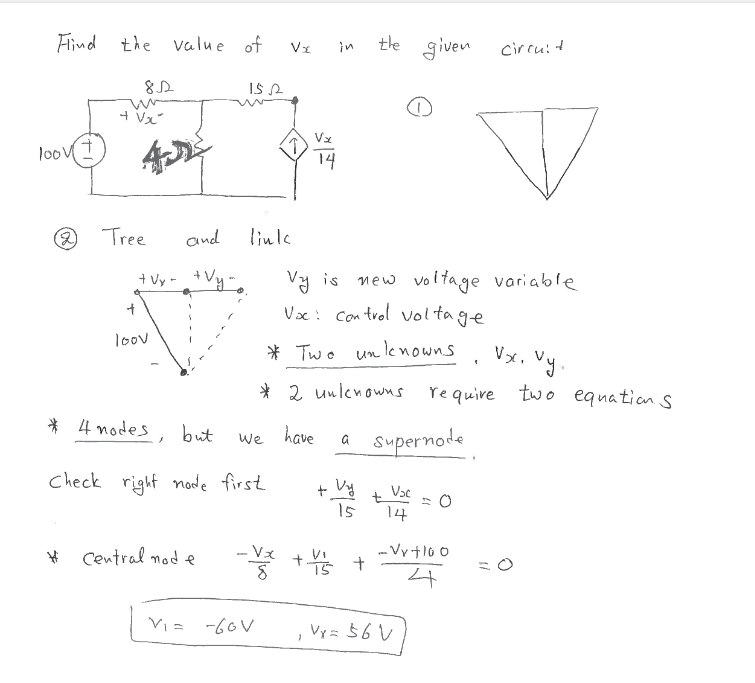 Find the value of Vx in the given circuit
8Ω 15Ω
+ Vx -
100V + - 4Ω ↑ Vx/14
①
② Tree and link
+ Vx - + Vy -
+ 100V -
Vy is new voltage variable
Vx: control voltage
* Two unknowns, Vx, Vy.
* 2 unknowns require two equations
* 4 nodes, but we have a supernode.
Check right node first + Vy/15 + Vx/14 = 0
* Central node - Vx/8 + V1/15 + -Vx+100/4 = 0
V1 = -60V, Vx = 56V